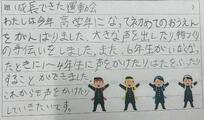 成長できた運動会
わたしは今年高学年になってはじめてのおうえん
をがんばりました。大きな声を出したり、物づくり
の手伝いをしました。また、6年生がいなくなっ
たときに1〜4年生に声をかけたり、はたをふったり
することができました。
これからも声をかけたり
していきたいです。